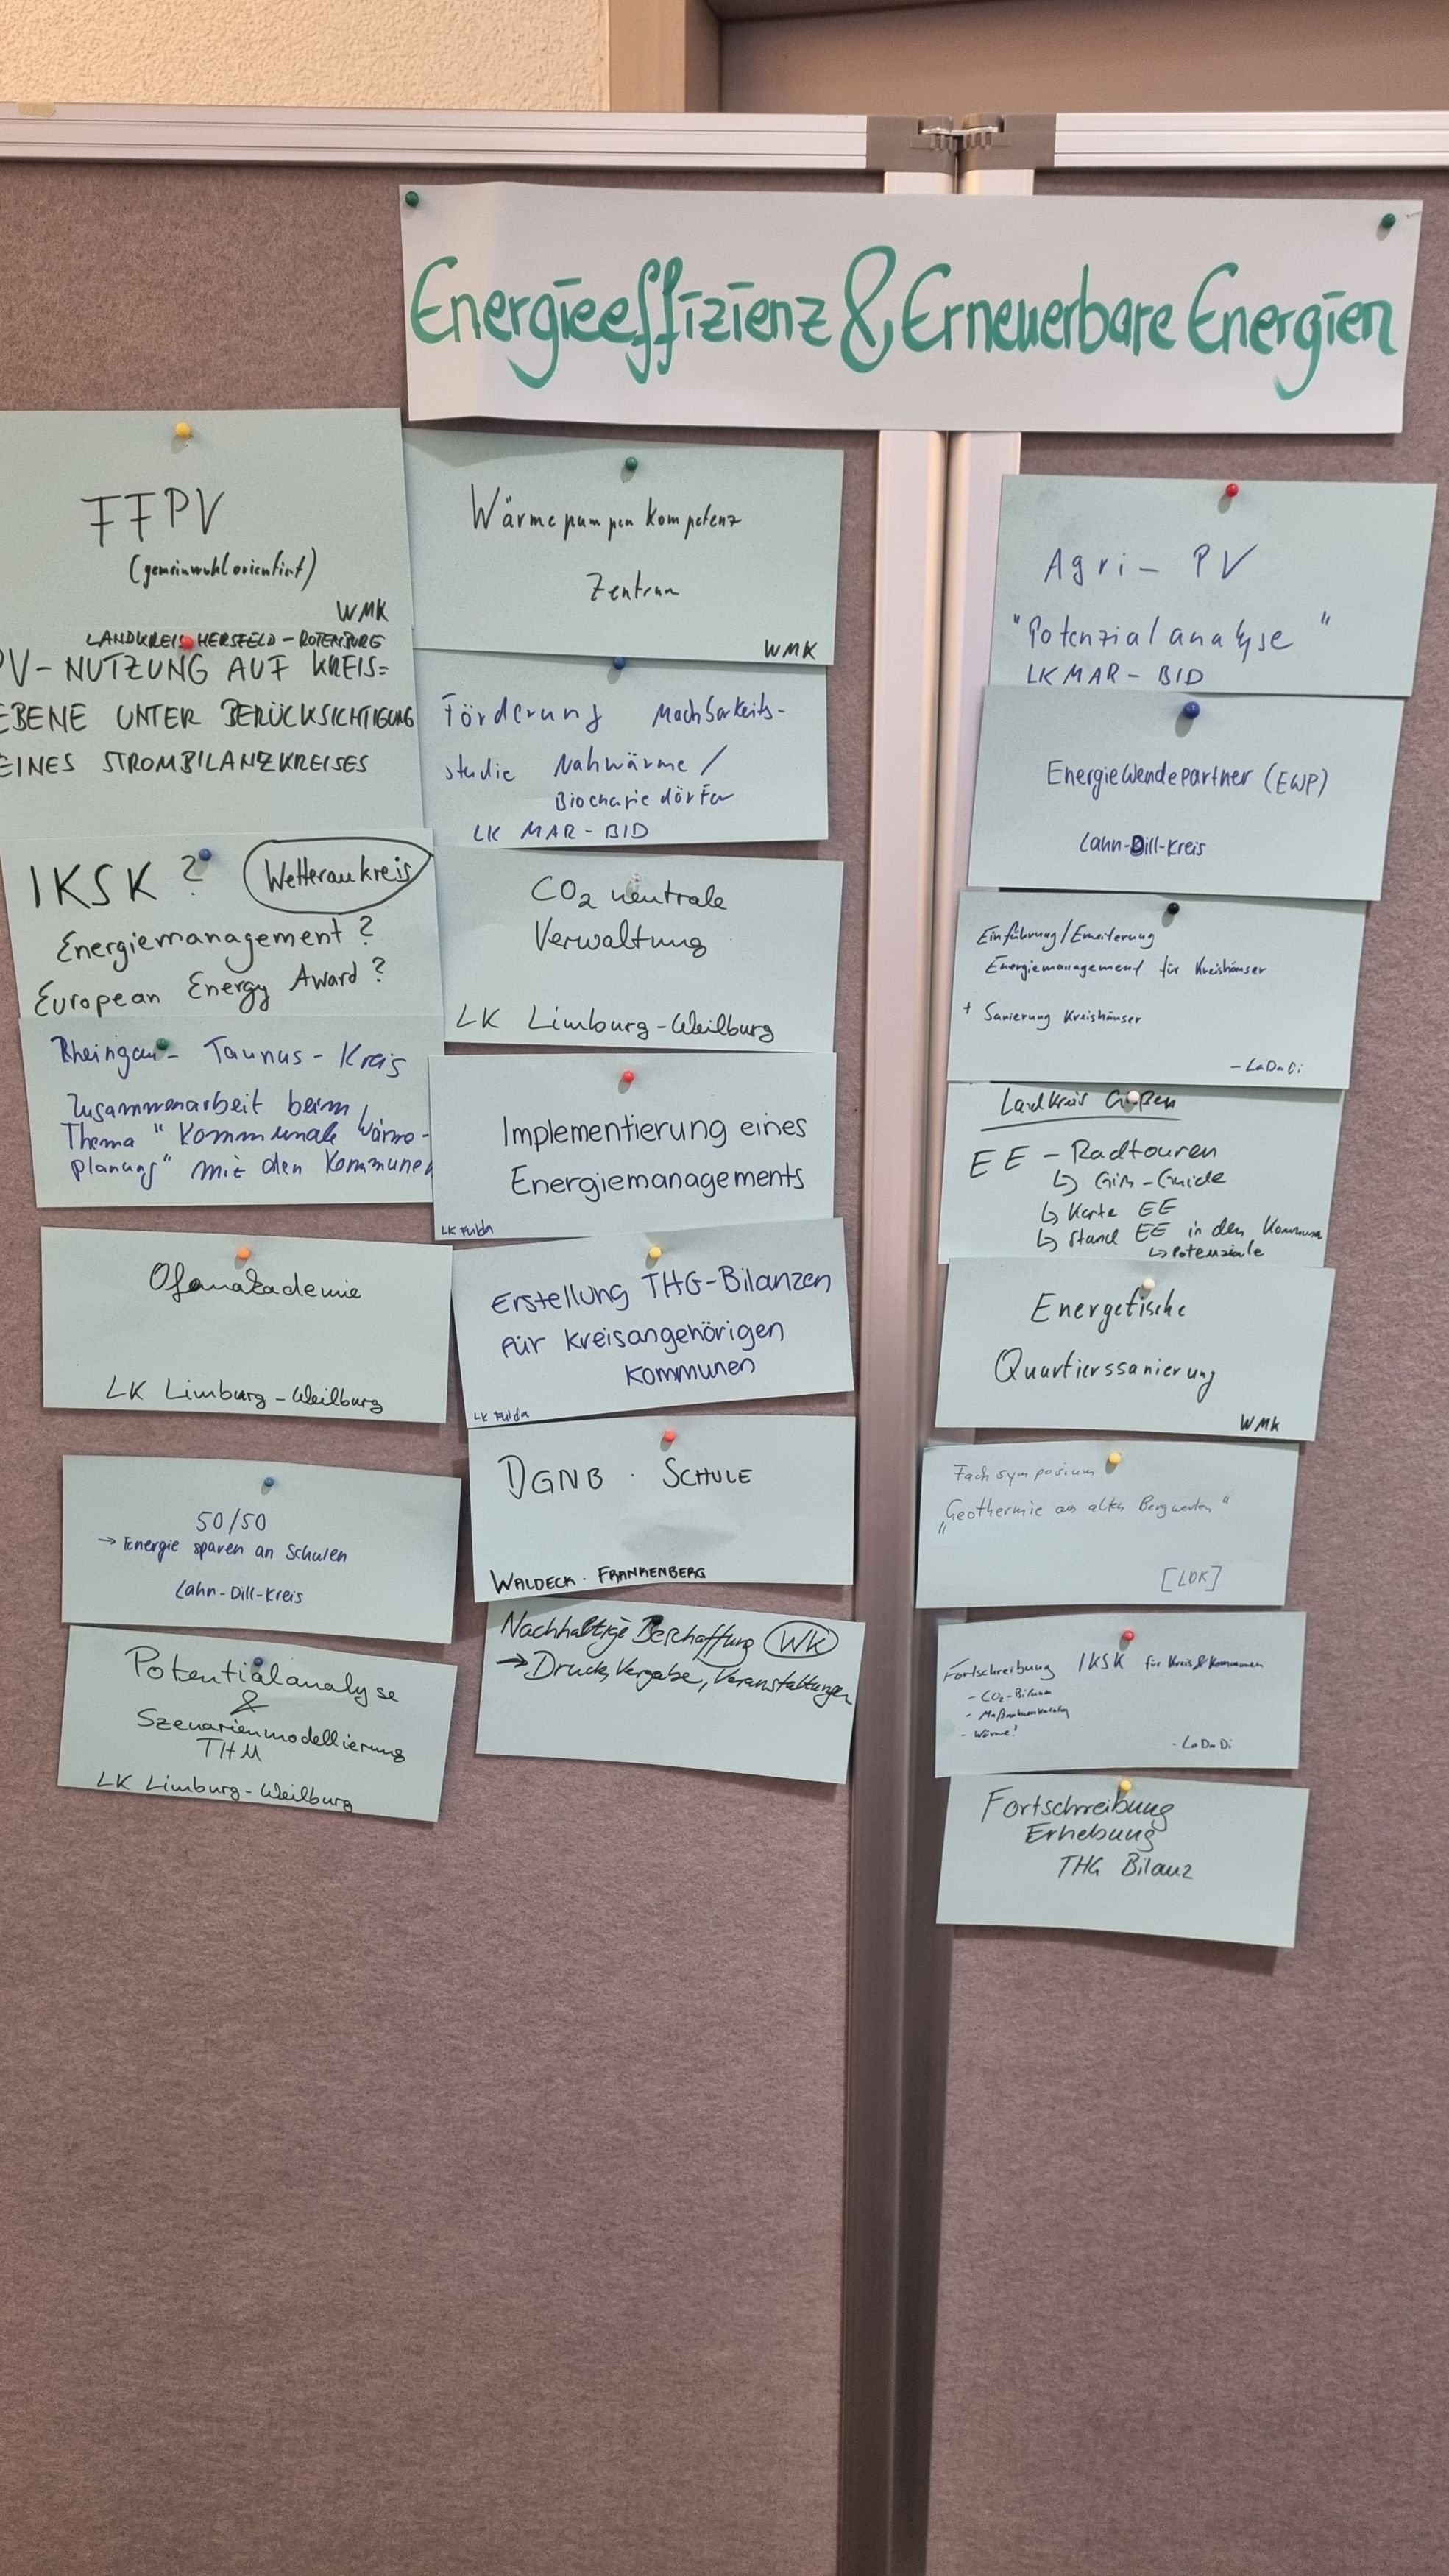 Energieeffizienz & Erneuerbare Energien
FFPV
(gemeinwohlorientiert)
WMK
LANDKREIS HERSFELD-ROTENBURG
PV-NUTZUNG AUF KREIS=
EBENE UNTER BERÜCKSICHTIGUNG
EINES STROMBILANZKREISES
IKSK ? Wetteraukreis
Energiemanagement ?
European Energy Award ?
Rheingau-Taunus-Kreis
Zusammenarbeit beim
Thema "Kommunale Wärme-
planung" mit den Kommunen
Ofenakademie
LK Limburg-Weilburg
50/50
→ Energie sparen an Schulen
Lahn-Dill-Kreis
Potentialanalyse
&
Szenarienmodellierung
THM
LK Limburg-Weilburg
Wärmepumpen Kompetenz
Zentrum
WMK
Förderung Machbarkeits-
studie Nahwärme /
LK MAR-BID
CO2 neutrale
Verwaltung
LK Limburg-Weilburg
Implementierung eines
Energiemanagements
LK Fulda
Erstellung THG-Bilanzen
für kreisangehörigen
Kommunen
LK Fulda
DGNB · SCHULE
WALDECK · FRANKENBERG
Nachhaltige Beschaffung WK
→ Druck, Vergabe, Veranstaltungen
Agri-PV
"Potenzialanalyse"
LK MAR-BID
EnergieWendepartner (EWP)
Lahn-Dill-Kreis
Einführung/Erweiterung
Energiemanagement für Kreishäuser
+ Sanierung Kreishäuser
- LaDaDi
Landkreis Gießen
EE-Radtouren
↳ Gim-Guide
↳ Karte EE
↳ Stand EE in den Kommunen
↳ Potenziale
Energetische
Quartierssanierung
WMK
Fachsymposium
"Geothermie aus alten Bergwerken"
[LDK]
Fortschreibung IKSK für Kreis & Kommunen
- CO2-Bilanz
- Maßnahmenkatalog
- Wärme!
- LaDaDi
Fortschreibung
Erhebung
THG Bilanz